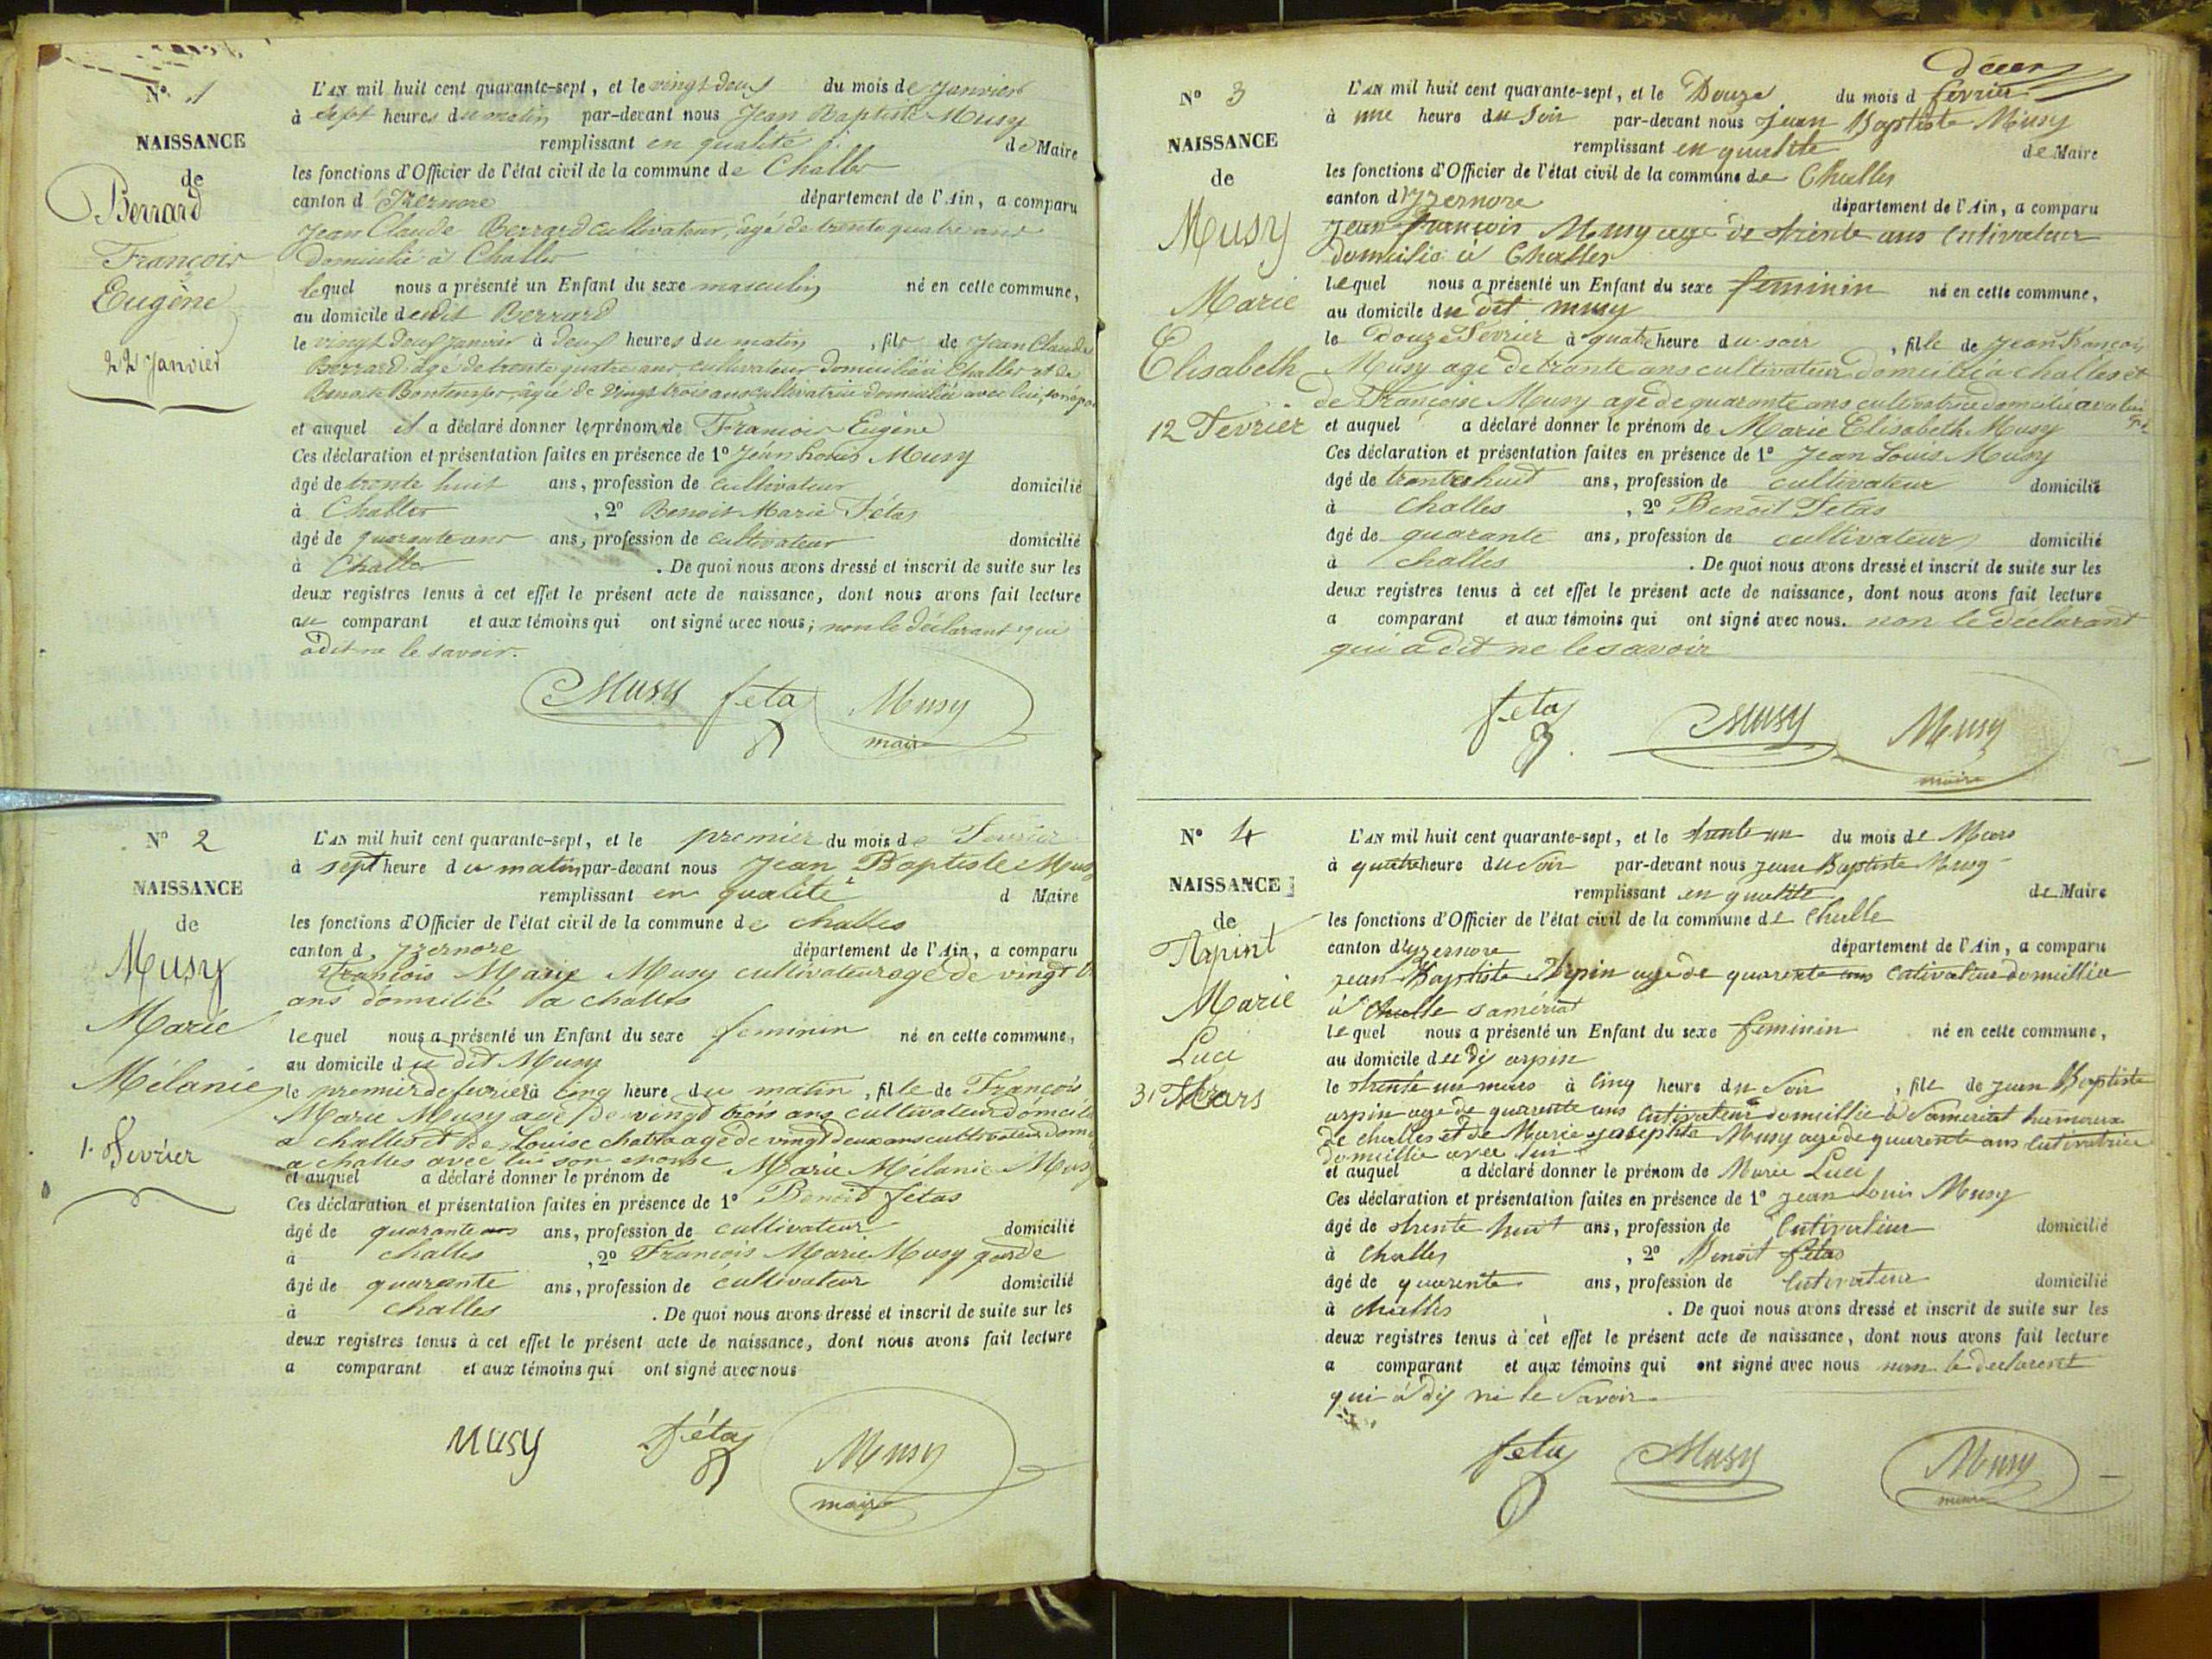 N° 1
NAISSANCE
de
Berrard
François
Eugène
22 Janvier
L'AN mil huit cent quarante-sept, et le vingt deux du mois de Janvier
à sept heures du matin par-devant nous Jean Baptiste Musy
remplissant en qualité de Maire
les fonctions d'Officier de l'état civil de la commune de Challes
canton d'Izernore département de l'Ain, a comparu
Jean Claude Berrard cultivateur, âgé de trente quatre ans
domicilié à Challes
lequel nous a présenté un Enfant du sexe masculin né en cette commune,
au domicile dudit Berrard
le vingt deux janvier à deux heures du matin, fils de Jean Claude
Berrard âgé de trente quatre ans, cultivateur domicilié à Challes et de
Benoite Bontemps, âgée de vingt trois ans cultivatrice domiciliée avec lui, son épou
et auquel il a déclaré donner le prénom de François Eugène
Ces déclaration et présentation faites en présence de 1° Jean Louis Musy
âgé de trente huit ans, profession de cultivateur domicilié
à Challes, 2° Benoit Marie Fétas
âgé de quarante ans ans, profession de cultivateur domicilié
à Challes. De quoi nous avons dressé et inscrit de suite sur les
deux registres tenus à cet effet le présent acte de naissance, dont nous avons fait lecture
au comparant et aux témoins qui ont signé avec nous; non le déclarant qui
a dit ne le savoir.
Musy feta Musy
maire
N° 2
NAISSANCE
de
Musy
Marie
Mélanie
1. Fevrier
L'AN mil huit cent quarante-sept, et le premier du mois de Fevrier
à sept heure du matin par-devant nous Jean Baptiste Mus
remplissant en qualité d Maire
les fonctions d'Officier de l'état civil de la commune de challes
canton d yzernore département de l'Ain, a comparu
François Marie Musy cultivateur agé de vingt
ans domicilié a challes
lequel nous a présenté un Enfant du sexe feminin né en cette commune,
au domicile du dit Musy
le premier de fevrier à cinq heure du matin, fille de François
Marie Musy agé de vingt trois ans cultivateur domicilié
a challes et de Louise agé de vingt deux ans
a challes avec lui son epouse
et auquel a déclaré donner le prénom de Marie Mélanie Musy
Ces déclaration et présentation faites en présence de 1° Benoit fétas
âgé de quarante ans ans, profession de cultivateur domicilié
à challes, 2° François Marie Musy garde
âgé de quarante ans, profession de cultivateur domicilié
à challes. De quoi nous avons dressé et inscrit de suite sur les
deux registres tenus à cet effet le présent acte de naissance, dont nous avons fait lecture
a comparant et aux témoins qui ont signé avec nous
Musy fétas Musy
maire
décés
N° 3
NAISSANCE
de
Musy
Marie
Elisabeth
12 Fevrier
L'AN mil huit cent quarante-sept, et le Douze du mois d fevrier
à une heure du soir par-devant nous Jean Baptiste Musy
remplissant en qualité de Maire
les fonctions d'Officier de l'état civil de la commune de Challes
canton d'yzernore département de l'Ain, a comparu
jean françois Musy agé de trente ans cutivateur
domicilié à Challes
lequel nous a présenté un Enfant du sexe feminin né en cette commune,
au domicile du dit musy
le Douze Fevrier à quatre heure du soir, fille de jean François
Musy agé de trante ans cultivateur domicilié a challes et
de Françoise Musy agé de quarante ans cultivatrice domicilié avec lui
et auquel a déclaré donner le prénom de Marie Elisabeth Musy
Ces déclaration et présentation faites en présence de 1° Jean Louis Musy
âgé de trante huit ans, profession de cultivateur domicilié
à challes, 2° Benoit Fétas
âgé de quarante ans, profession de cultivateur domicilié
à challes. De quoi nous avons dressé et inscrit de suite sur les
deux registres tenus à cet effet le présent acte de naissance, dont nous avons fait lecture
a comparant et aux témoins qui ont signé avec nous. non le déclarant
qui a dit ne le savoir
fetas Musy Musy
maire
N° 4
NAISSANCE
de
Arpint
Marie
Luci
31 Mars
L'AN mil huit cent quarante-sept, et le trente un du mois de Mars
à quatre heure du soir par-devant nous jean Baptiste Musy
remplissant en qualité de Maire
les fonctions d'Officier de l'état civil de la commune de Challe
canton d'yzernore département de l'Ain, a comparu
jean Baptiste Arpin age de quarente ans cutivateur domicillie
à Challe samériat
lequel nous a présenté un Enfant du sexe feminin né en cette commune,
au domicile du dis arpin
le trente un mars à cinq heure du soir, fille de jean Baptiste
arpin age de quarente ans cutivateur domicillie à Sameriat hameaux
de challes et de Marie Musy age de quarente ans cutivatrice
domicillie avec lui
et auquel a déclaré donner le prénom de Marie Luci
Ces déclaration et présentation faites en présence de 1° jean Louis Musy
âgé de trente huit ans, profession de cutivateur domicilié
à Challes, 2° Benoit fétas
âgé de quarente ans, profession de cutivateur domicilié
à challes. De quoi nous avons dressé et inscrit de suite sur les
deux registres tenus à cet effet le présent acte de naissance, dont nous avons fait lecture
a comparant et aux témoins qui ont signé avec nous non le declarent
qui à dis ne le savoir
fetas Musy Musy
maire